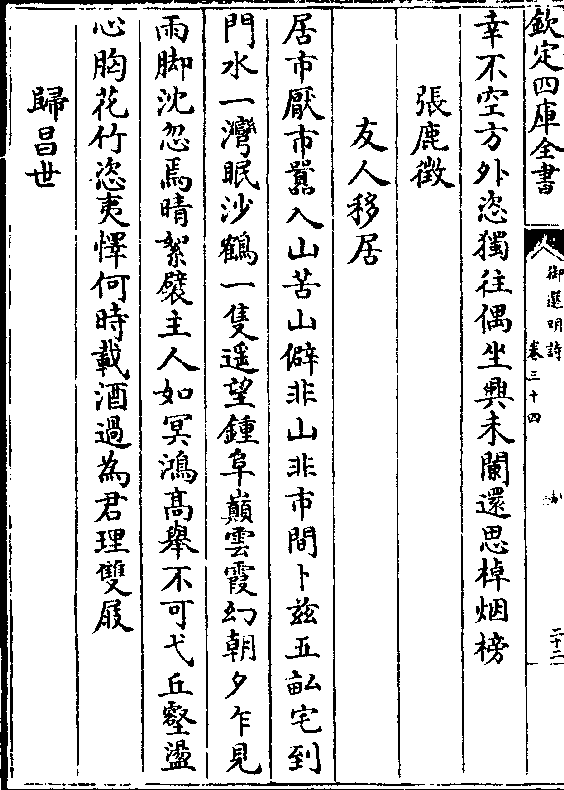 欽定四庫全書
御選明詩
卷三十四
二十二
幸不空方外恣獨往偶坐興未闌還思棹烟榜
張鹿徵
友人移居
居市厭市囂入山苦山僻非山非市間卜兹五畝宅到
門水一灣眠沙鶴一隻遥望鍾阜巔雲霞幻朝夕乍見
雨脚沈忽焉晴絮襞主人如冥鴻高舉不可弋丘壑盪
心胸花竹恣夷懌何時載酒過為君理雙屐
歸昌世